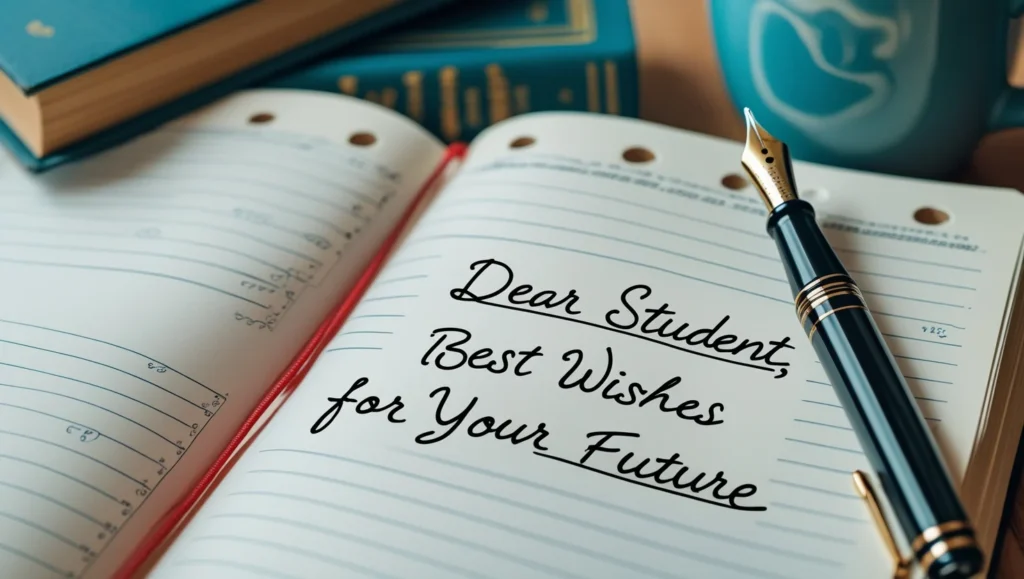 Dear Student,
Best Wishes
for Your Future